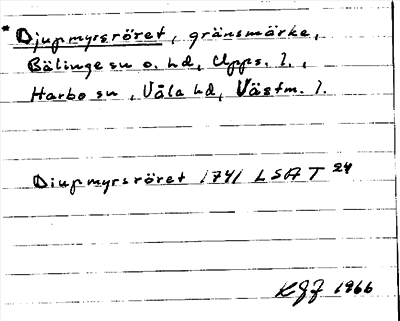 * Djupmyrsröret, gränsmärke,
Bälinge sn o. hd, Upps. l.,
Harbo sn, Våla hd, Västm. l.
Diupmyrsröret 1741 LSA T 24
KGJ 1966